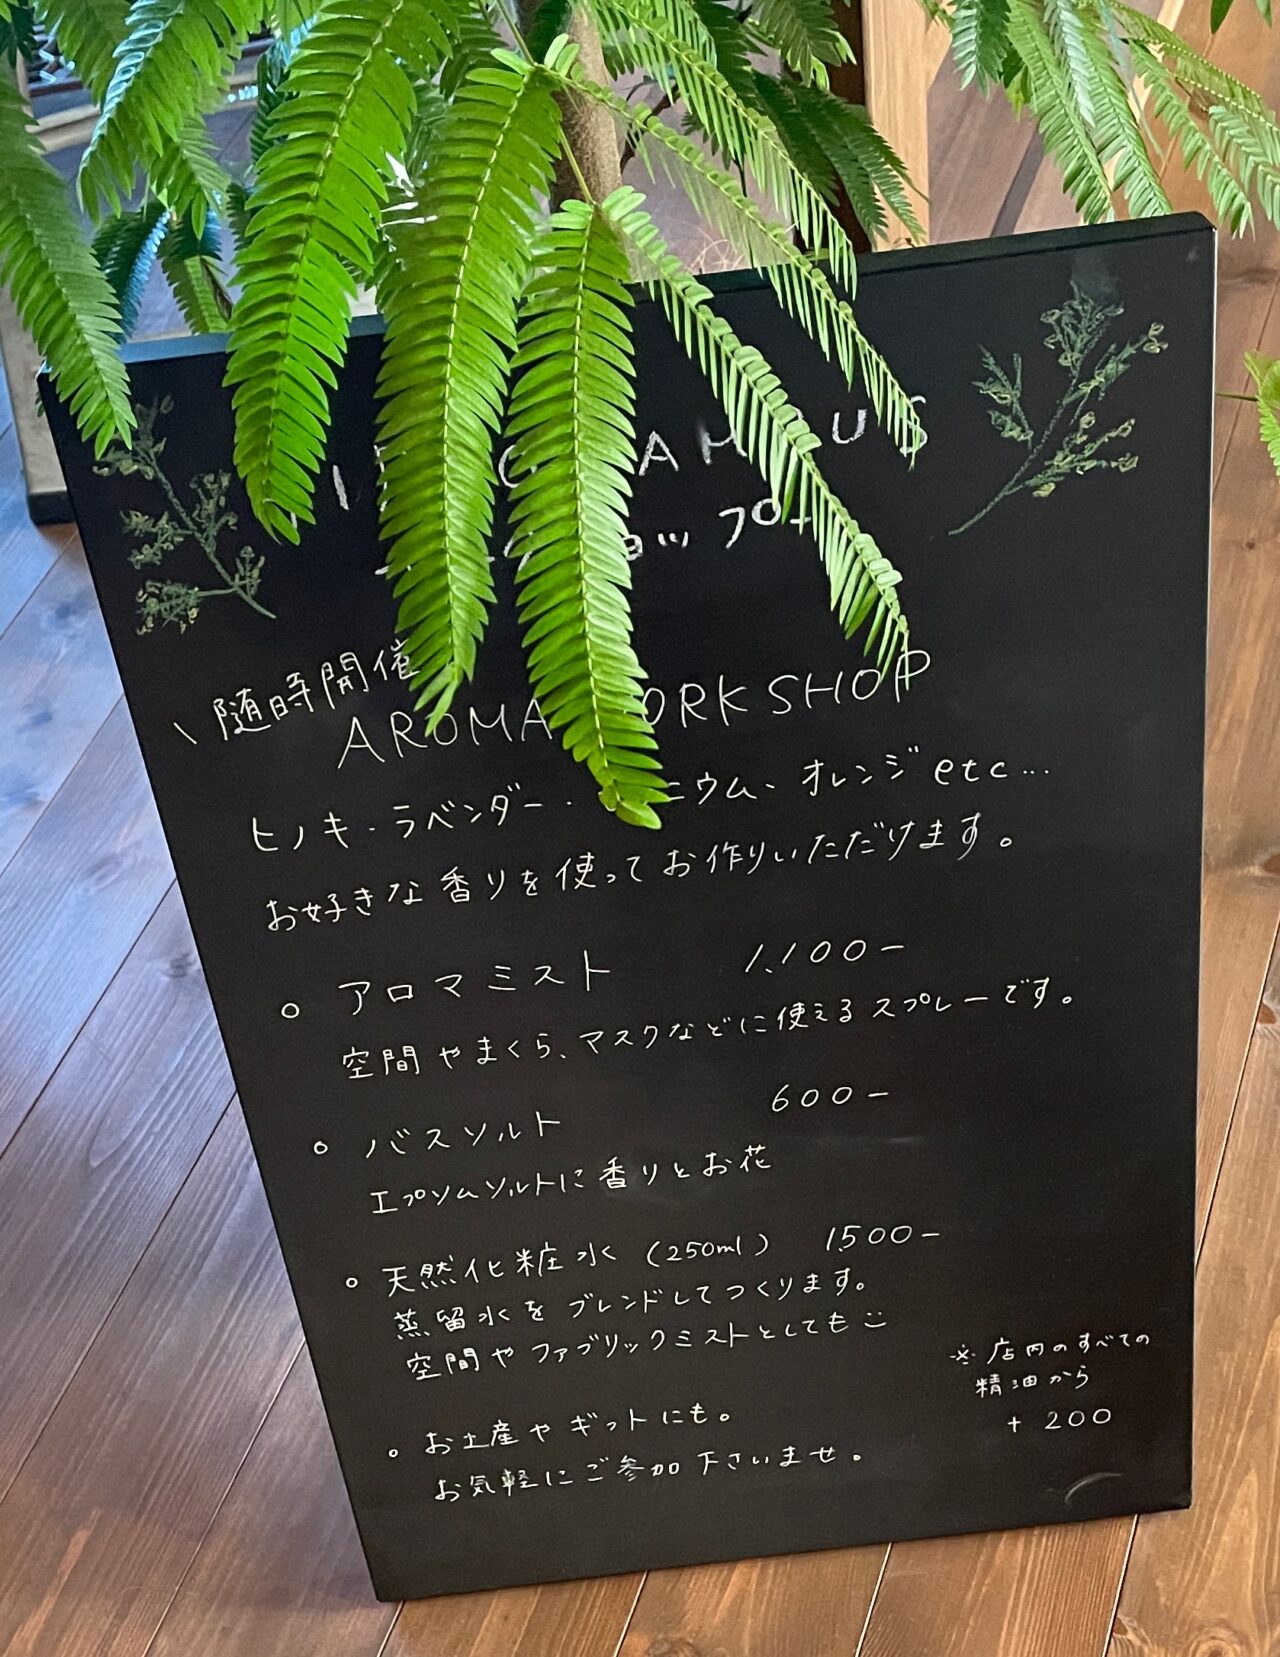 ョップ
随時開催
AROMA WORKSHOP
ヒノキ・ラベンダー・ ニウム、オレンジetc...
お好きな香りを使ってお作りいただけます。
○ アロマミスト 1,100-
空間やまくら、マスクなどに使えるスプレーです。
○ バスソルト 600-
エプソムソルトに香りとお花
○ 天然化粧水 (250ml) 1,500-
蒸留水をブレンドしてつくります。
空間やファブリックミストとしても
○ お土産やギットにも。
お気軽にご参加下さいませ。
※店内のすべての
精油から
+ 200